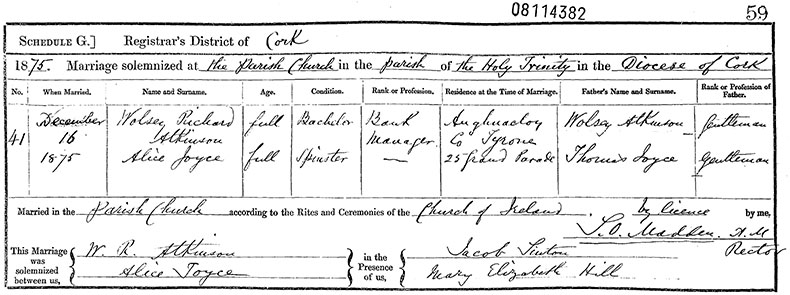 08114382
59
SCHEDULE G.] Registrar's District of Cork
1875. Marriage solemnized at the Parish Church in the Parish of the Holy Trinity in the Diocese of Cork
No. When Married. Name and Surname. Age. Condition. Rank or Profession. Residence at the Time of Marriage. Father's Name and Surname. Rank or Profession of Father.
41 December 16 1875
Wolsey Richard Atkinson full Bachelor Bank Manager Aughnacloy Co Tyrone Wolsey Atkinson Gentleman
Alice Joyce full Spinster — 25 Grand Parade Thomas Joyce Gentleman
Married in the Parish Church according to the Rites and Ceremonies of the Church of Ireland, by licence by me,
S.O. Madden A.M
Rector
This Marriage was solemnized between us, W. R. Atkinson
Alice Joyce
in the Presence of us, Jacob
Mary Elizabeth Hill